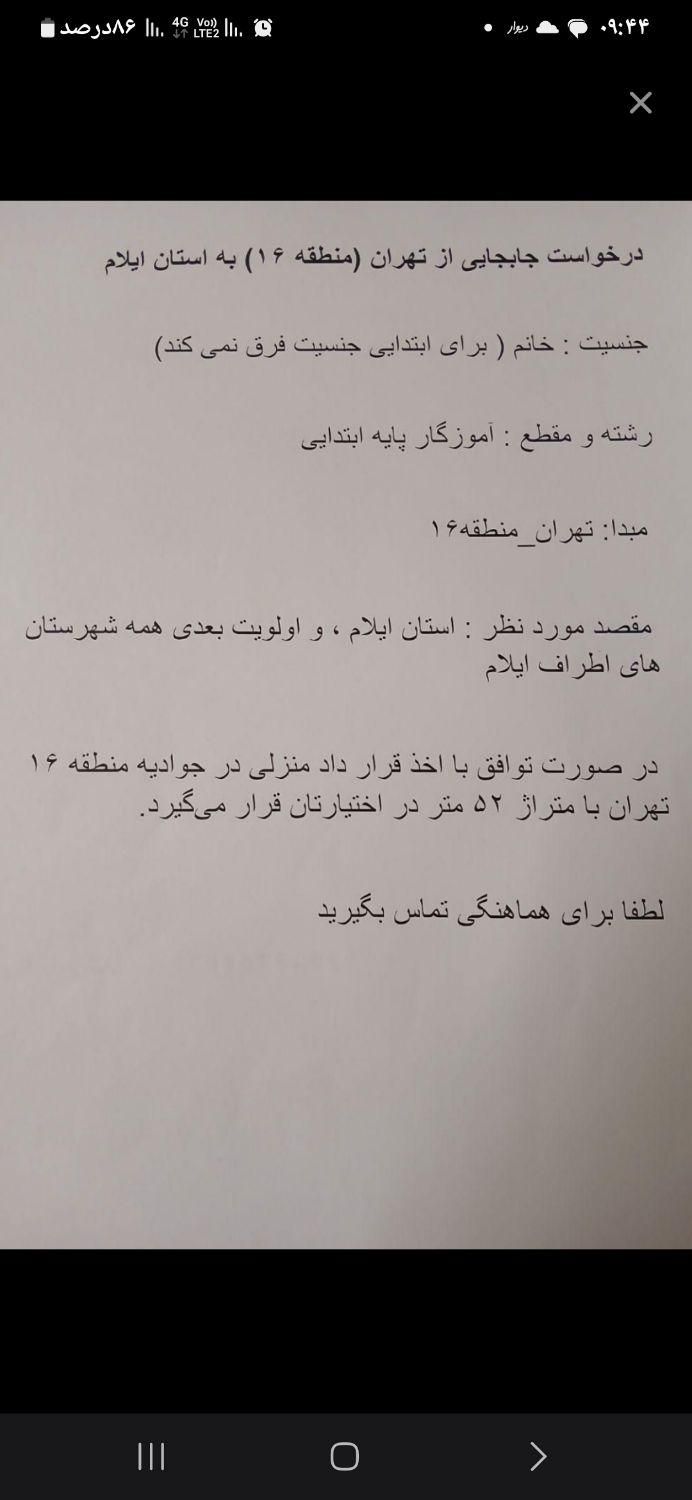 ۰۹:۴۴ دیوار 4G Vo)) LTE2 ۸۶درصد
درخواست جابجایی از تهران (منطقه ۱۶) به استان ایلام
جنسیت : خانم ( برای ابتدایی جنسیت فرق نمی کند)
رشته و مقطع : آموزگار پایه ابتدایی
مبدا: تهران_منطقه۱۶
مقصد مورد نظر : استان ایلام ، و اولویت بعدی همه شهرستان
های اطراف ایلام
در صورت توافق با اخذ قرار داد منزلی در جوادیه منطقه ۱۶
تهران با متراژ ۵۲ متر در اختیارتان قرار می‌گیرد.
لطفا برای هماهنگی تماس بگیرید